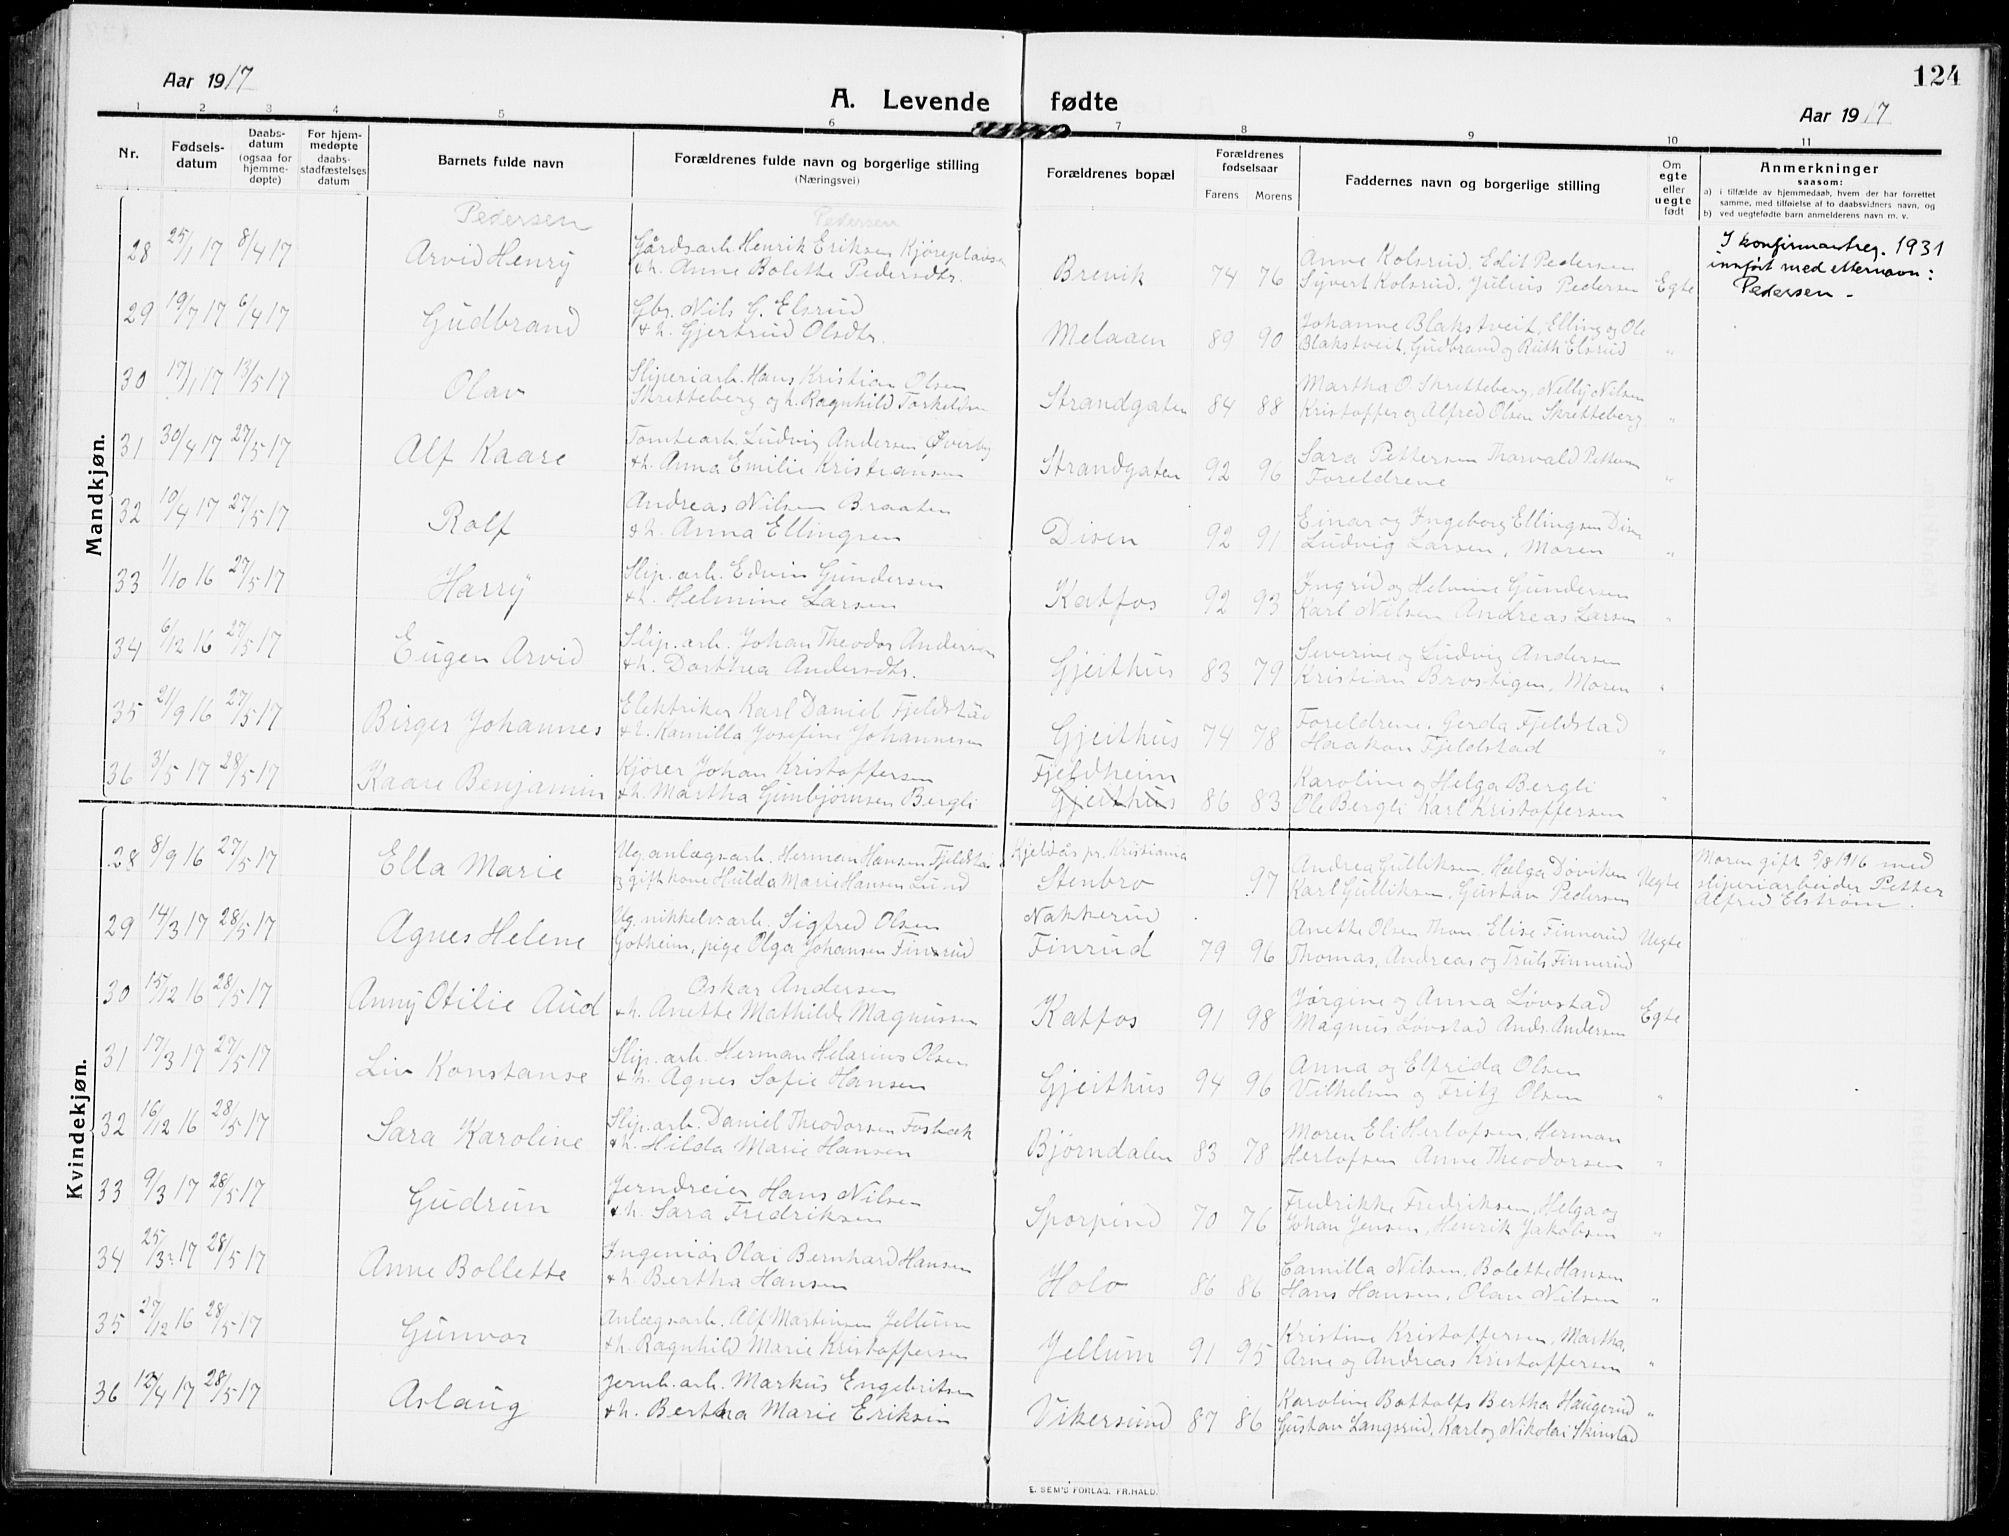 124
Aar 1917
A. Levende fødte
Aar 1917
1 2 3 4 5 6 7 8 9 10 11
Nr.
Fødsels-
datum
Daabs-
datum
(ogsaa for
hjemme-
døpte)
For hjem-
medøpte
daabs-
stadfæstelses
datum
Barnets fulde navn
Forældrenes fulde navn og borgerlige stilling
(Næringsvei)
Forældrenes bopæl
Forældrenes
fødselsaar
Farens Morens
Faddernes navn og borgerlige stilling
Om
egte
eller
uegte
født
Anmerkninger
saasom:
a) i tilfælde av hjemmedaab, hvem der har forrettet
samme, med tilføielse af to daabsvidners navn, og
b) ved uegtefødte barn anmelderens navn m. v.
Mandkjøn.
Pedersen Pedersen
28 25/1 17 8/4 17 Arvid Henry Gårdsarb. Henrik Eriksen Kjøreplassen
& h. Anne Bolette Pedersdtr. Brevik 74 76 Anne Kolsrud, Edit Pedersen
Syvert Kolsrud, Julius Pedersen Egte
I konfirmantreg. 1931
innført med etternavn:
Pedersen -
29 17 6/4 17 Gudbrand Gbr. Nils G. Elsrud
& h. Gjertrud Olsdtr. Melaaen 89 90 Johanne Blakstveit, Elling og Ole
Blakstveit, Gudbrand og Ruth Elsrud "
30 17/1 17 13/5 17 Olav Sliperiarb. Hans Kristian Olsen
Skretteberg og h. Ragnhild Torkeldsen Strandgaten 84 88 Martha O. Skretteberg, Nelly Nilsen
Kristoffer og Alfred Olsen Skretteberg "
31 30/4 17 27/5 17 Alf Kaare Tomtearb. Ludvig Andersen Øverby
& h. Anna Emilie Kristiansen Strandgaten 92 96 Sara Pettersen Thorvald Pettersen
Foreldrene "
32 19/4 17 27/5 17 Rolf Andreas Nilsen Braaten
& h. Anna Ellingsen Disen 92 91 Einar og Ingeborg Ellingsen Disen
Ludvig Larsen, Moren "
33 1/10 16 27/5 17 Harry Slip. arb. Edvin Gundersen
& h. Helmine Larsen Katfos 92 93 Ingrid og Helvine Gundersen
Karl Nilsen Andreas Larsen "
34 6/12 16 27/5 17 Eugen Arvid Slip. arb. Johan Theodor Andersen
& h. Dorthea Andersdtr. Gjeithus 83 79 Severine og Ludvig Andersen
Kristian Brostigen, Moren "
35 21/9 16 27/5 17 Birger Johannes Elektriker Karl Daniel Fjeldstad
& h. Kamilla Josefine Johannesen Gjeithus 74 78 Foreldrene, Gerda Fjeldstad
Haakon Fjeldstad "
36 3/5 17 28/5 17 Kaare Benjamin Kjører Johan Kristoffersen
& h. Martha Gunbjørnsen Bergli Fjeldheim
Gjeithus 86 83 Karoline og Helga Bergli
Ole Bergli Karl Kristoffersen "
Kvindekjøn.
28 8/9 16 27/5 17 Ella Marie Ug. anlægsarb. Herman Hansen Fjeldstad
og gift kone Hulda Marie Hansen Lund Kjeldås pr. Kristiania
Stenbro 97 Andrea Gulliksen, Helga Døviken
Karl Gulliksen, Gustav Pedersen Uegte
Moren gift 5/8 1916 med
sliperiarbeider Petter
Alfred Elstrøm.
29 14/3 17 28/5 17 Agnes Helene Ug. nikkelv. arb. Sigfred Olsen
Gotheim, pige Olga Johansen Finrud Nakkerud
Finrud 79 96 Anette Olsen Thon. Elise Finnerud
Thomas, Andreas og Truls Finnerud Uegte
30 15/12 16 28/5 17 Anny Otilie Aud Oskar Andersen
& h. Anette Mathilde Magnussen Katfos 91 98 Jørgine og Anna Løvstad
Magnus Løvstad Ands. Andersen Egte
31 17/3 17 27/5 17 Liv Konstanse Slip. arb. Herman Helarius Olsen
& h. Agnes Sofie Hansen Gjeithus 94 96 Anna og Elfrida Olsen
Vilhelm og Fritz Olsen "
32 16/12 16 28/5 17 Sara Karoline Slip. arb. Daniel Theodorsen Fosbæk
& h. Hilda Marie Hansen Bjørndalen 83 78 Moren Eli Herlofsen, Herman
Herlofsen Anne Theodorsen "
33 9/3 17 28/5 17 Gudrun Jerndreier Hans Nilsen
& h. Sara Fredriksen Sporpind 70 76 Fredrikke Fredriksen, Helga og
Johan Jensen, Henrik Jakobsen "
34 25/3 17 28/5 17 Anne Bollette Ingeniør Olai Bernhard Hansen
& h. Bertha Hansen Holo 86 86 Camilla Nilsen, Bolette Hansen
Hans Hansen, Olav Nilsen "
35 27/12 16 28/5 17 Gunvor Anlægsarb. Alf Martinsen Jellum
& h. Ragnhild Marie Kristoffersen Jellum 91 95 Kristine Kristoffersen, Martha,
Arne og Andreas Kristoffersen "
36 12/4 17 28/5 17 Aslaug Jernb. arb. Markus Engebritsen
& h. Bertha Marie Eriksen Vikersund 87 86 Karoline Bottolfs Bertha Haugerud
Gustav Langsrud, Karl og Nikolai Skinstad "
E. SEM'S FORLAG, FR.HALD.